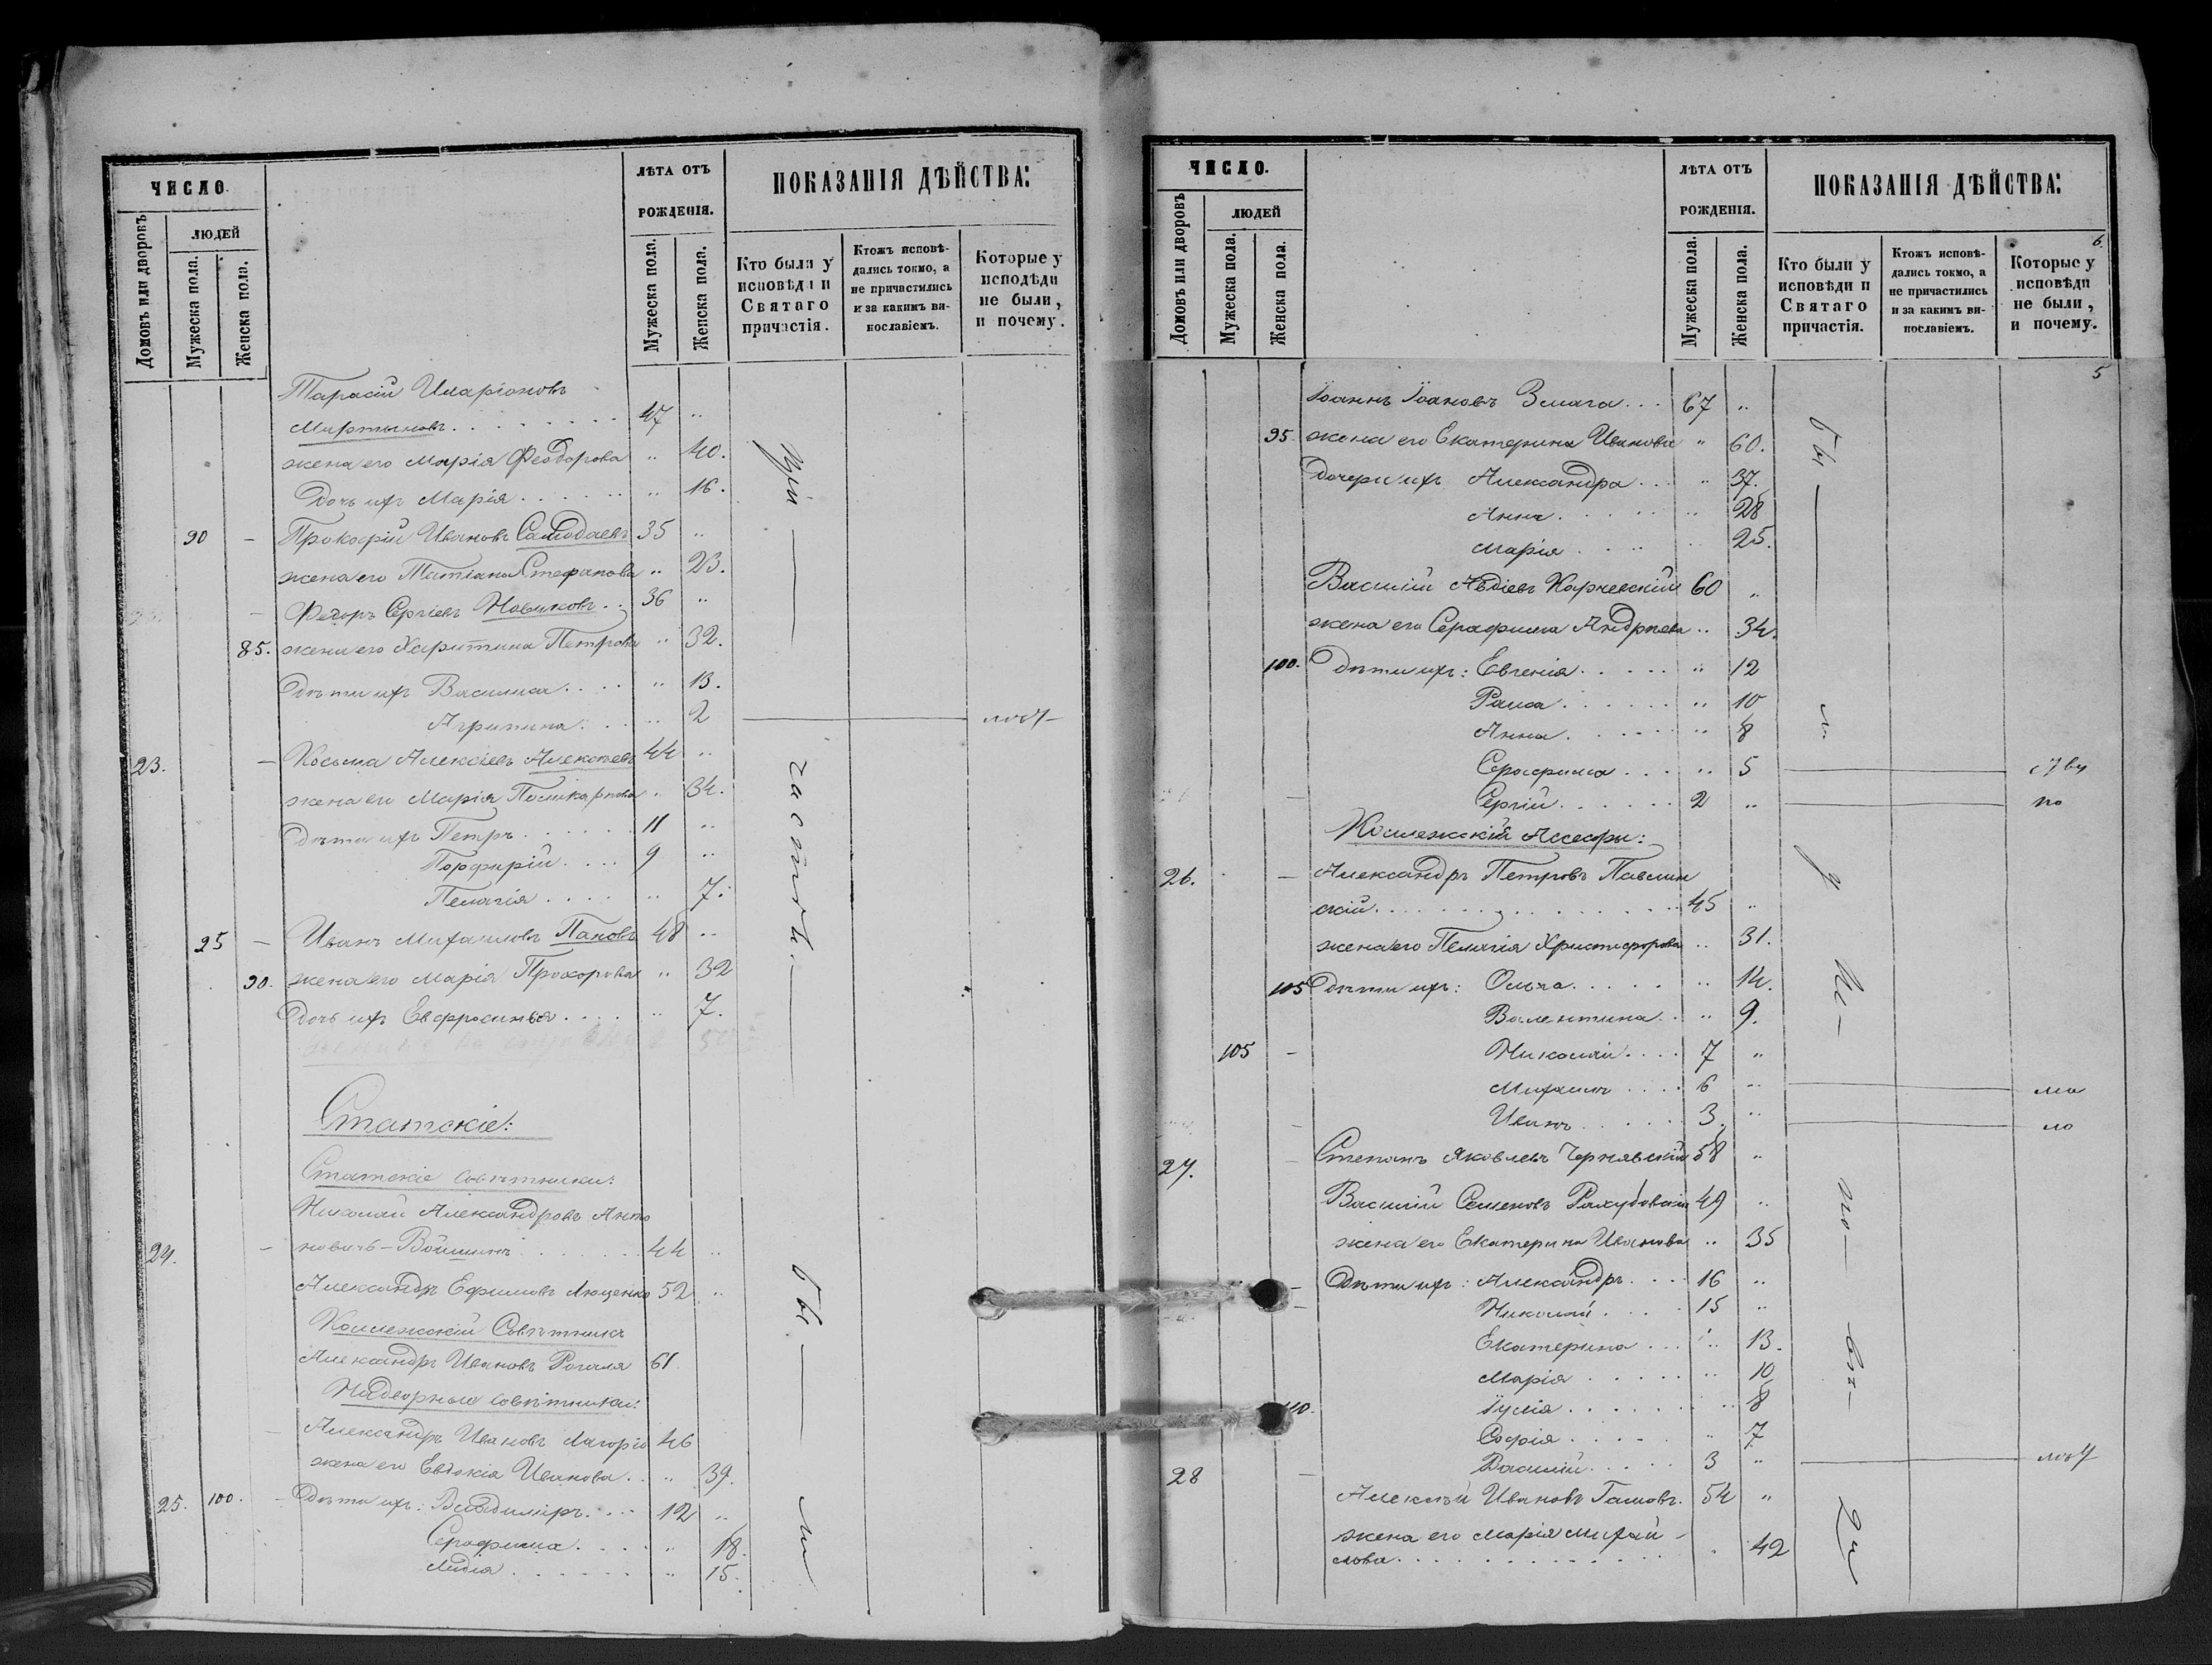 ЧИСЛО.
ЛѢТА ОТЪ
РОЖДЕНІЯ.
ПОКАЗАНІЯ ДѢЙСТВА:
Домовъ или дворовъ
ЛЮДЕЙ
Мужеска пола.
Женска пола.
Мужеска пола.
Женска пола.
Кто были у исповѣди и Святаго причастія.
Ктожъ исповѣдались токмо, а не причастились и за какимъ винословіемъ.
Которые у исповѣди не были, и почему.
Тарасій Иларіоновъ
Мартыновъ 47 "
жена его Марія Феодорова " 40.
Дочь ихъ Марія " 16.
90 - Прокофій Ивановъ Самодаевъ 35 "
жена его Татіана Стефанова " 23.
- Федоръ Сергіевъ Новиковъ 36 "
85. жена его Харитина Петрова " 32.
Дѣти ихъ Василиса " 13.
Агрипина " 2
23. - Косьма Алексіевъ Алексѣевъ 44 "
жена его Марія Поликарпова " 34.
Дѣти ихъ Петръ 11 "
Порфирій 9 "
Пелагія " 7.
95 - Иванъ Михаиловъ Пановъ 48 "
90. жена его Марія Прохорова " 32
Дочь ихъ Евфросинья " 7.
Статскіе:
Статскіе Совѣтники:
Николай Александровъ Анто
24. - новичъ-Войшинъ 44 "
Александръ Ефимовъ Люценко 52 "
Коллежскій Совѣтникъ
Александръ Ивановъ Рогаля 61
Надворные Совѣтники:
- Александръ Ивановъ Лагоріо 46
жена его Евдокія Иванова " 39.
25. 100. - Дѣти ихъ: Владиміръ 12 "
Серафима " 18.
Лидія " 15.
бы
ли
ЧИСЛО.
ЛѢТА ОТЪ
РОЖДЕНІЯ.
ПОКАЗАНІЯ ДѢЙСТВА:
Домовъ или дворовъ
ЛЮДЕЙ
Мужеска пола.
Женска пола.
Мужеска пола.
Женска пола.
Кто были у исповѣди и Святаго причастія.
Ктожъ исповѣдались токмо, а не причастились и за какимъ винословіемъ.
Которые у исповѣди не были, и почему.
6.
5
Іоаннъ Іоановъ Змага 67 "
95. жена его Екатерина Иванова " 60.
Дочери ихъ Александра " 37.
Анна " 28
Марія " 25.
Василій Авдіевъ Карчевскій 60 "
жена его Серафима Андреева " 34.
100. Дѣти ихъ: Евгенія " 12
Раиса " 10
Анна " 8
Серафима " 5
- Сергій 2 " по
Коллежскій Ассесоры:
26. - Александръ Петровъ Павлин
скій 45 "
жена его Пелагія Христофорова " 31.
105 Дѣти ихъ: Ольга " 14.
Валентина " 9.
105 - Николай 7 "
Михаилъ 6 " ма
- Иванъ 3 " ло
27. - Степанъ Яковлевъ Чернявскій 58 "
Василій Семеновъ 49 "
жена его Екатерина Иванова " 35
- Дѣти ихъ: Александръ 16 "
- Николай 15 "
Екатерина " 13.
Марія " 10
110. Іулія " 8
Софія " 7
- Василій 3 "
28 Алексѣй Ивановъ Гамовъ 54 "
жена его Марія Михай-
лова 42
бы
ли
у